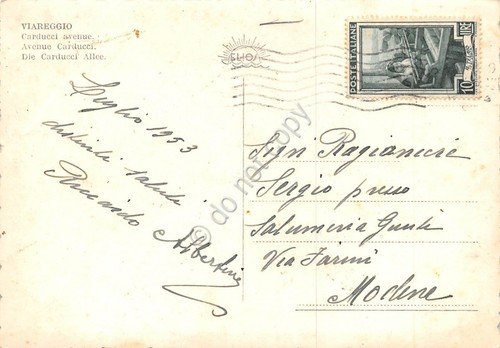 VIAREGGIO
Carducci avenue.
Avenue Carducci.
Die Carducci Allee.
SLIO
POSTE ITALIANE
10 LIRE
Luglio 1953
distinti saluti
Riccardo Albertini
Sign Ragioniere
Sergio presso
Salumeria Giusti
Via Farini
Modena
do not copy